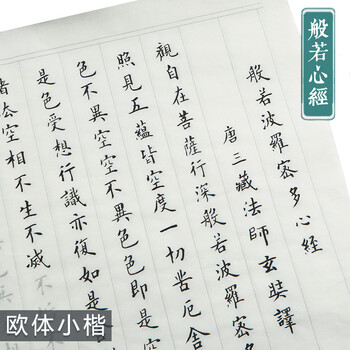 般若心經
般若波羅密多心經
唐三藏法師玄奘譯
觀自在菩薩行深般若波羅密多
照見五蘊皆空度一切苦厄舍
色不異空空不異色色即是空
是色受想行識亦復如是
諸法空相不生不滅
欧体小楷